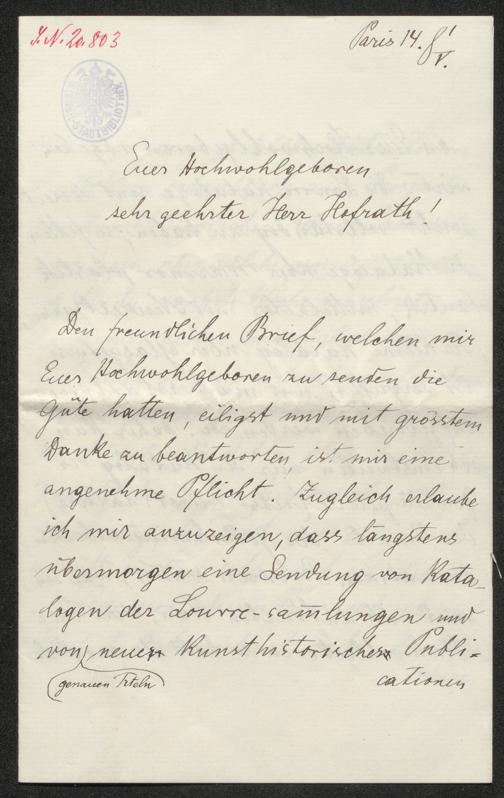 J. N. 20.803
Paris 14. 8/V.
STADTBIBLIOTHEK
Euer Hochwohlgeboren
sehr geehrter Herr Hofrath!
Den freundlichen Brief, welchen mir
Euer Hochwohlgeboren zu senden die
Güte hatten, eiligst und mit grösstem
Danke zu beantworten, ist mir eine
angenehme Pflicht. Zugleich erlaube
ich mir anzuzeigen, dass längstens
übermorgen eine Sendung von Kata-
logen der Louvre-sam̅lungen und
von neuer kunsthistorischer Publi-
genauen Titeln
cationen